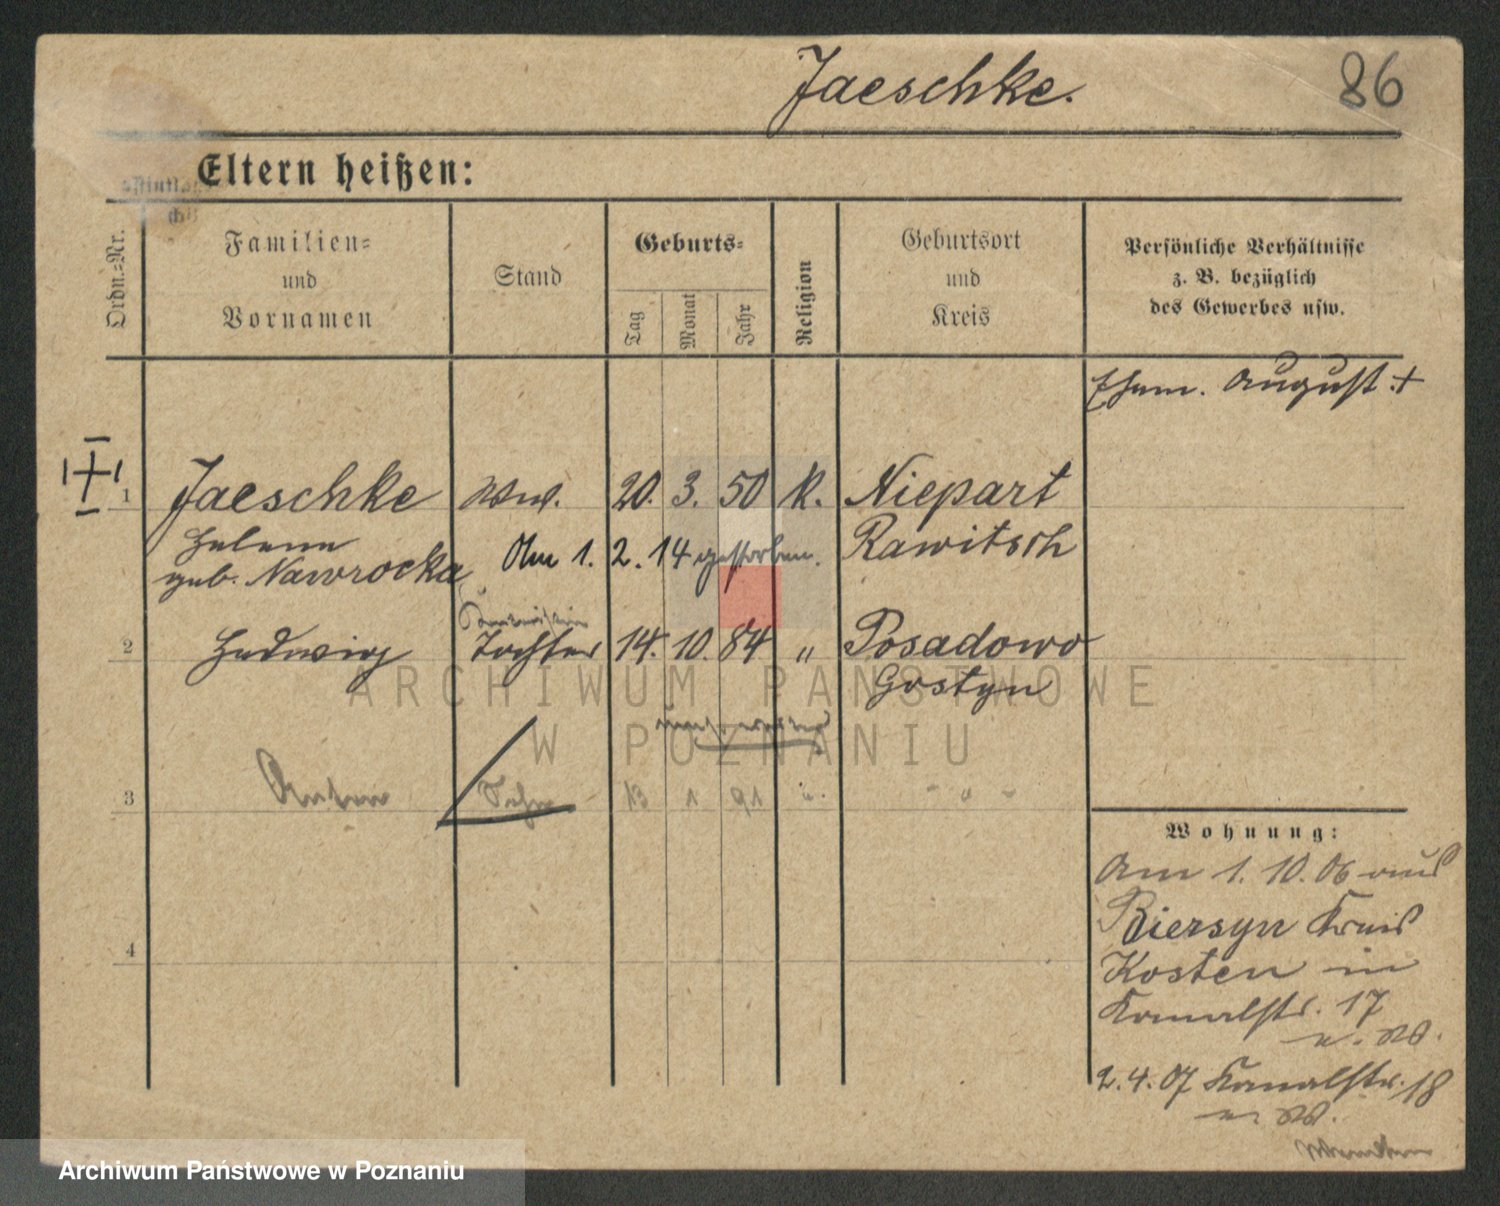 Jaeschke.
86
Eltern heißen:
Ordn.-Nr.
Familien-
und
Vornamen
Stand
Geburts-
Tag
Monat
Jahr
Religion
Geburtsort
und
Kreis
Persönliche Verhältnisse
z. B. bezüglich
des Gewerbes usw.
Ehem. August. +
1
Jaeschke Ww. 20. 3. 50 k. Niepart
Helene
geb. Nawrocka
Am 1. 2. 14 gestorben.
Rawitsch
2
Hedwig Tochter 14. 10. 84 " Posadowo
Gostyn
3
Anton Sohn 13 1 91 " - " -
4
Wohnung:
Am 1. 10. 06 aus
Biersyn Kreis
Kosten in
Kanalstr. 17
2. 4. 07 Kanalstr. 18
ARCHIWUM PAŃSTWOWE
W POZNANIU
Archiwum Państwowe w Poznaniu